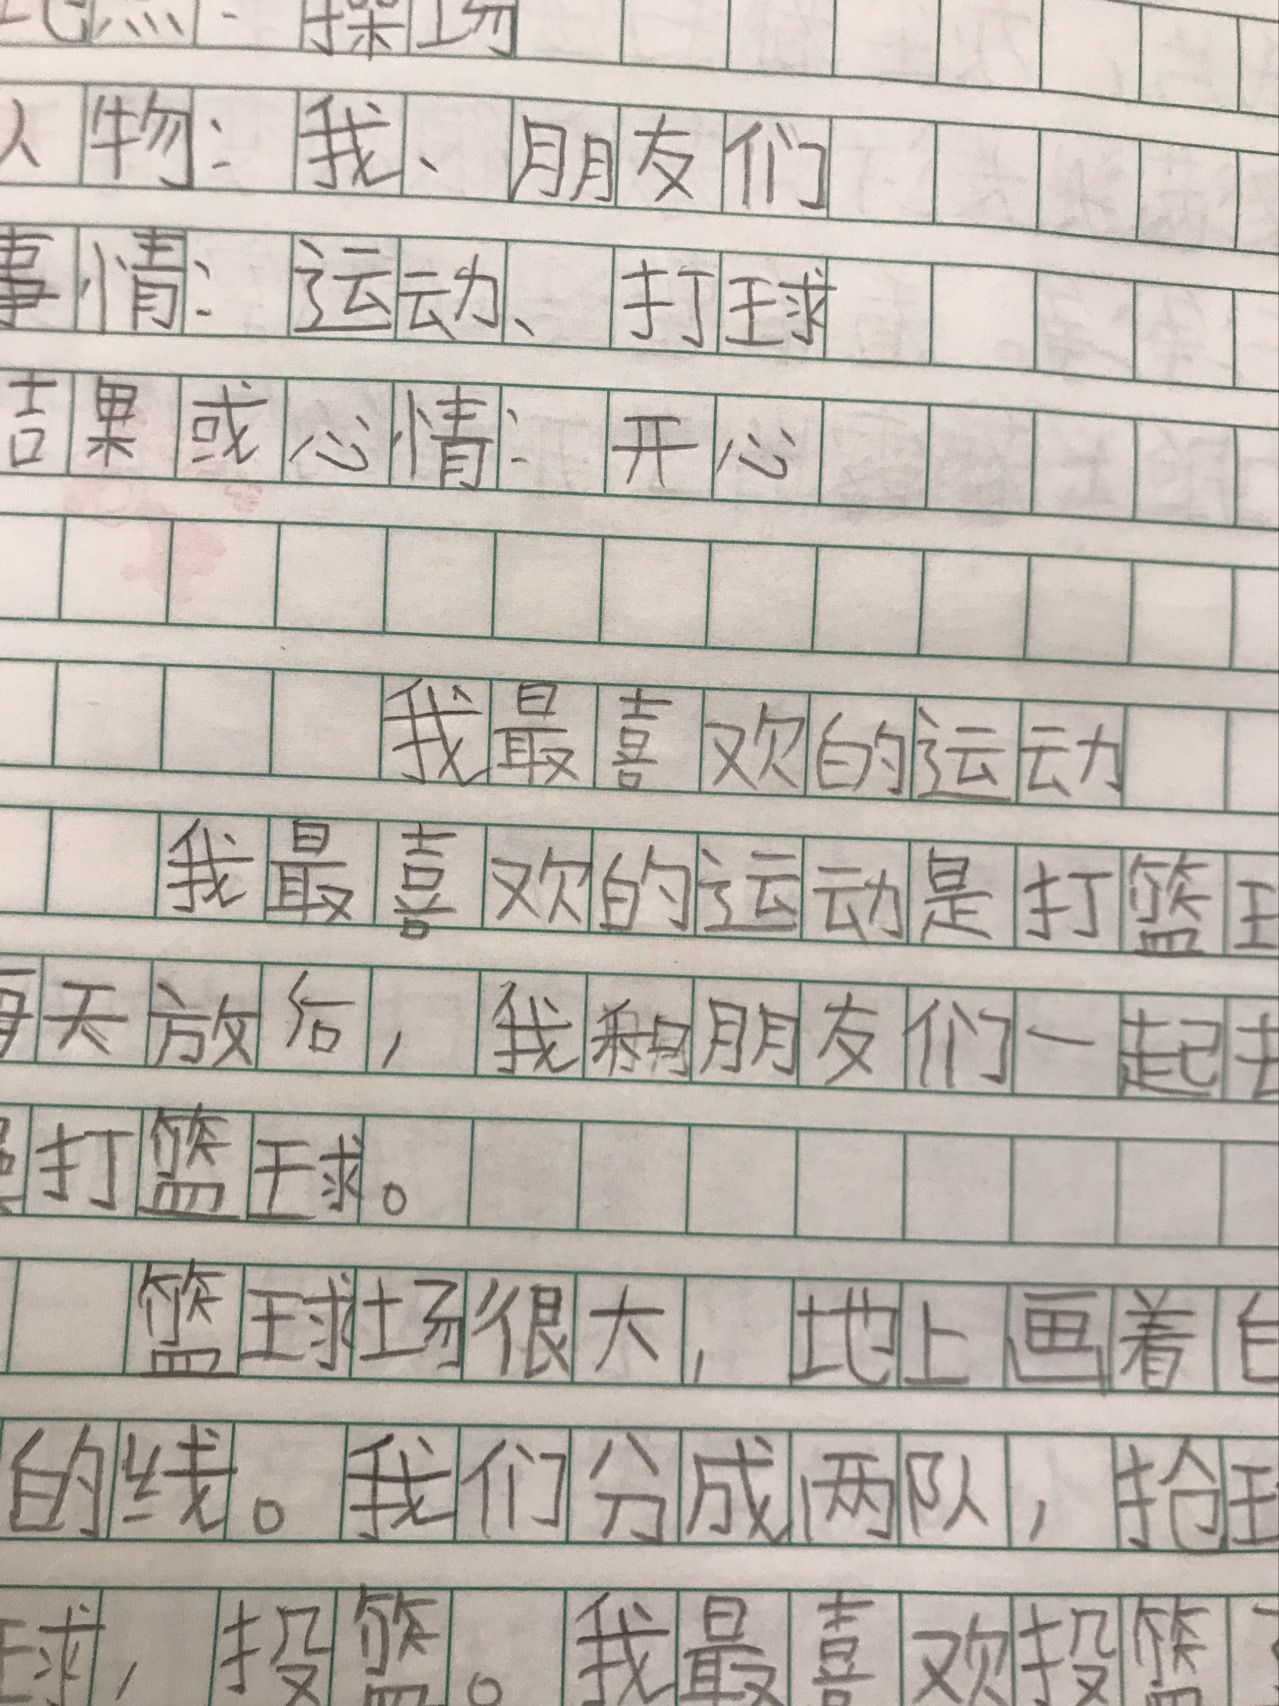 地点：操场
人物：我、朋友们
事情：运动、打球
结果或心情：开心
我最喜欢的运动
我最喜欢的运动是打篮球
每天放后，我和朋友们一起去
打篮球。
篮球场很大，地上画着白
的线。我们分成两队，抢球
球，投篮。我最喜欢投篮